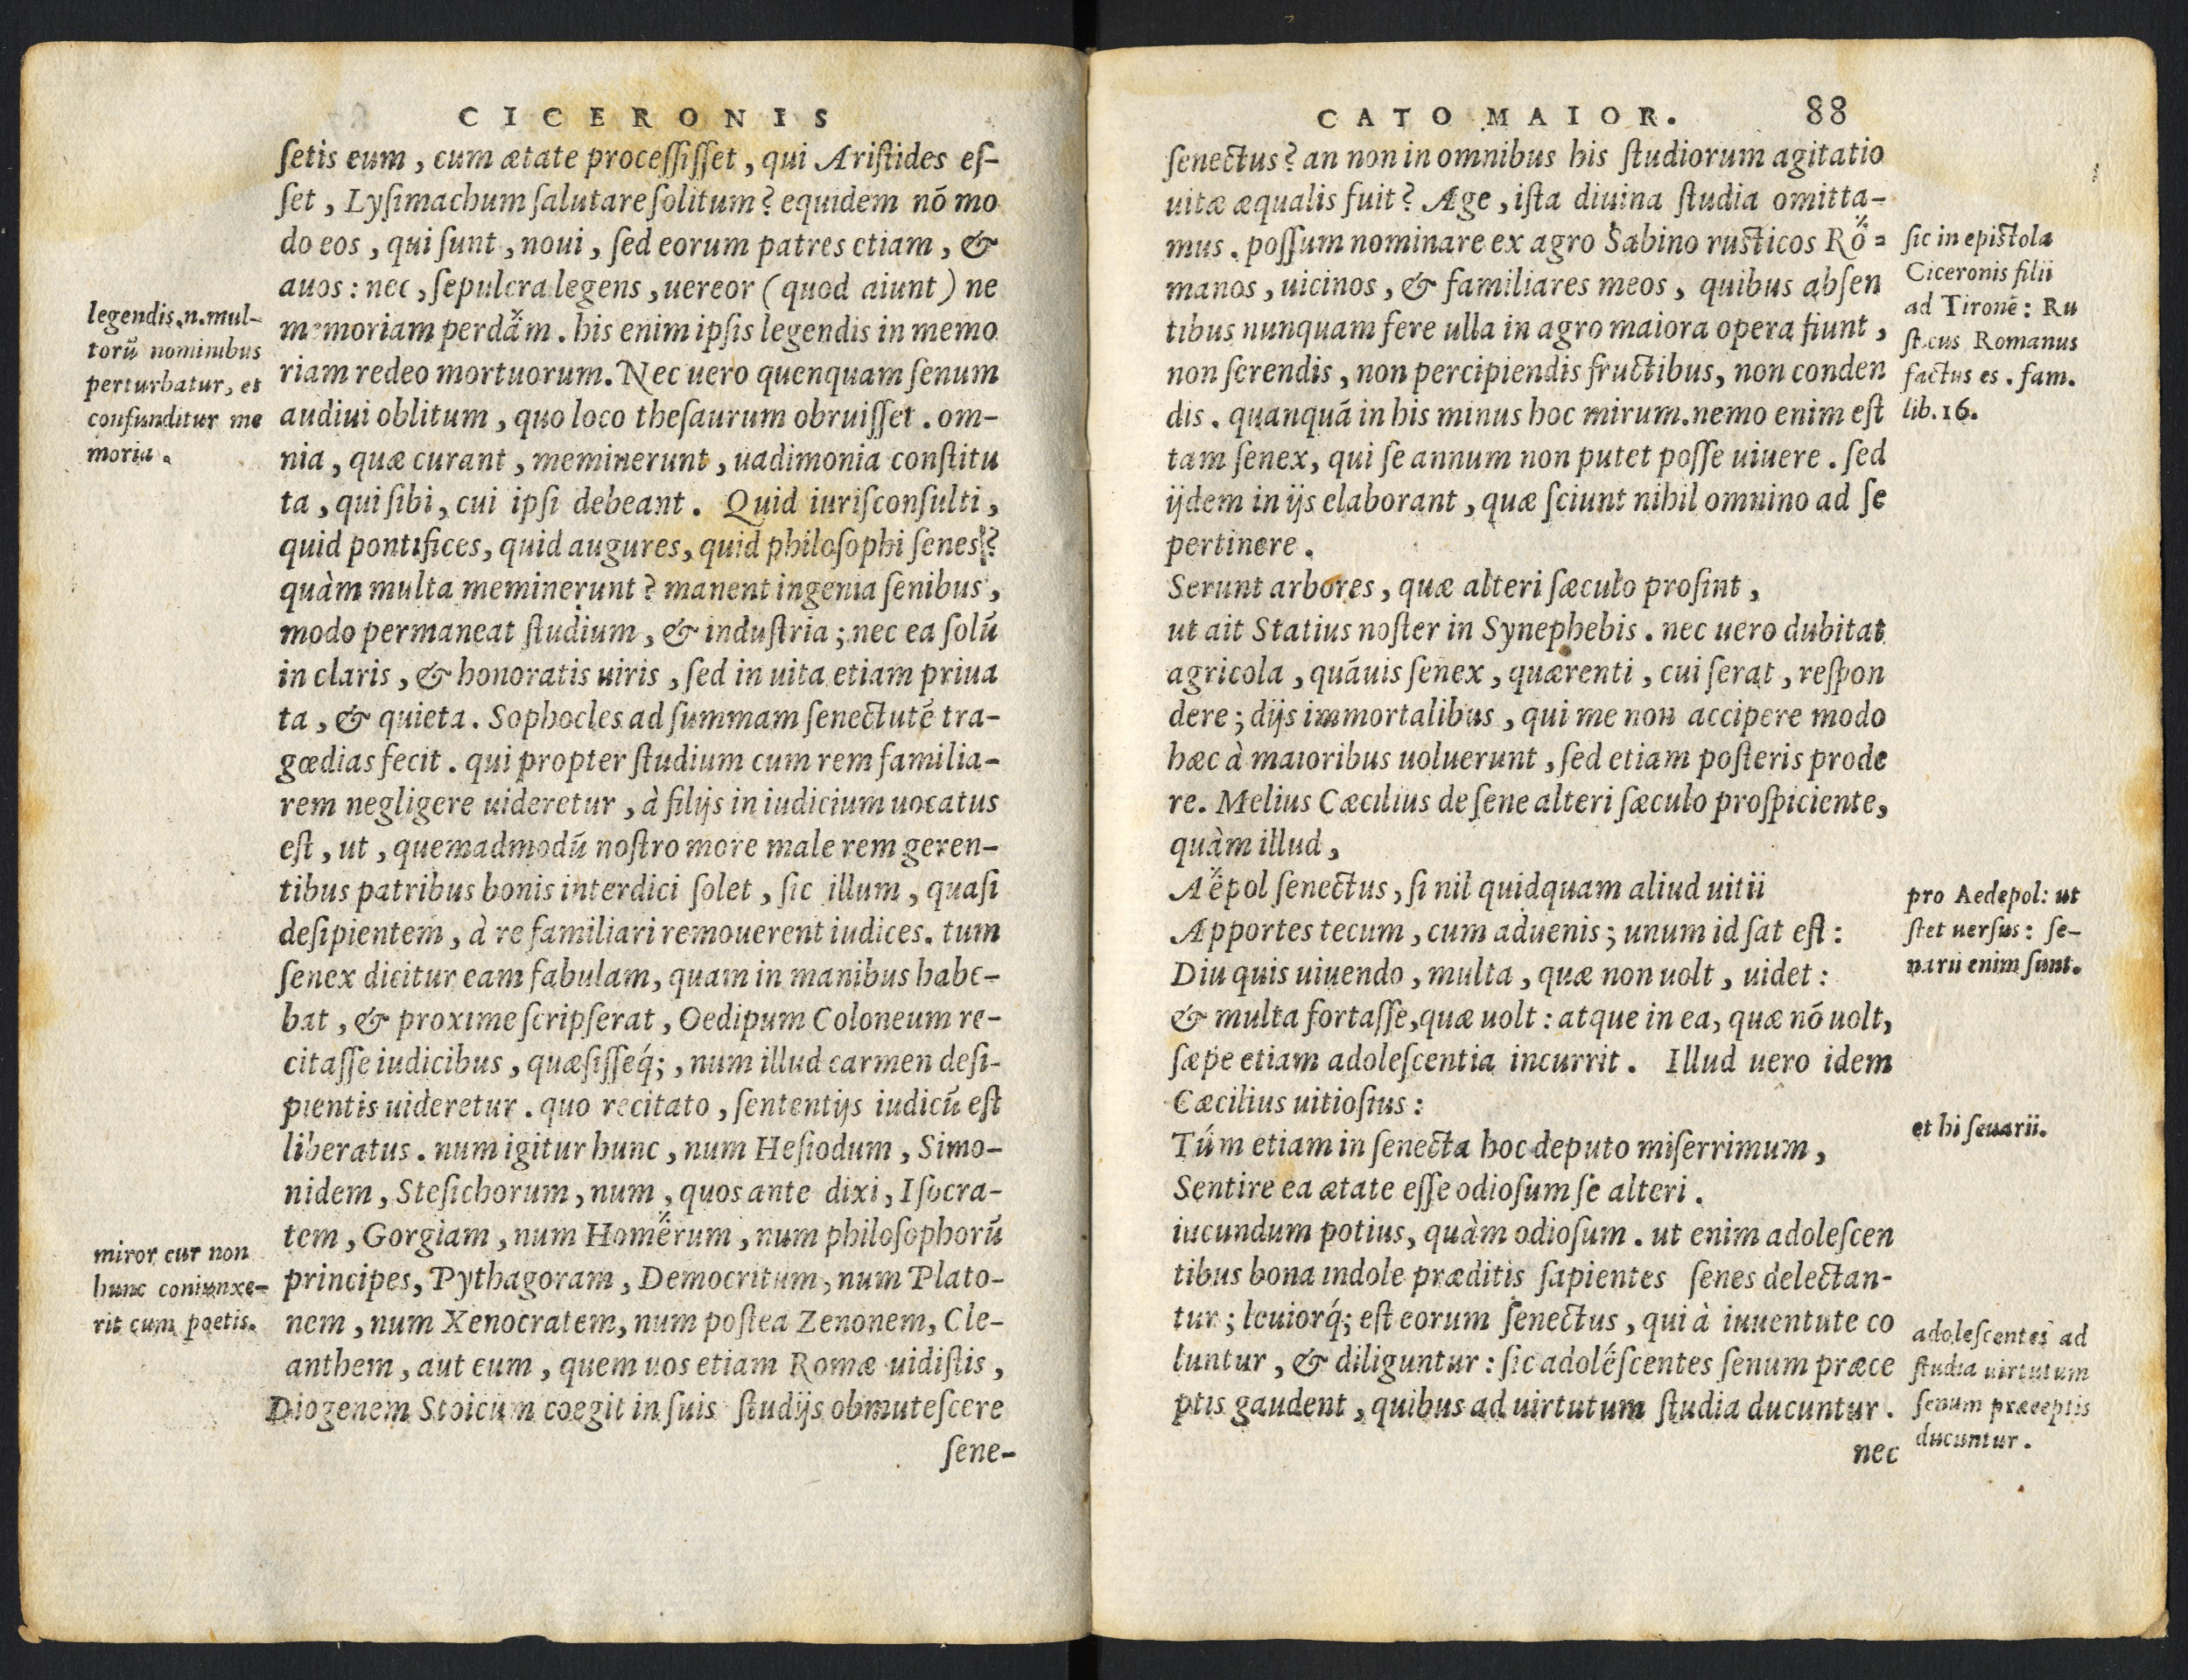 CICERONIS
ſetis eum, cum ætate proceſſiſſet, qui Ariſtides eſ-
ſet, Lyſimachum ſalutare ſolitum? equidem nō mo
do eos, qui ſunt, noui, ſed eorum patres etiam, &
auos: nec, ſepulcra legens, uereor (quod aiunt) ne
memoriam perdam. his enim ipſis legendis in memo
riam redeo mortuorum. Nec uero quenquam ſenum
audiui oblitum, quo loco theſaurum obruiſſet. om-
nia, quæ curant, meminerunt, uadimonia conſtitu
ta, qui ſibi, cui ipſi debeant. Quid iuriſconſulti,
quid pontifices, quid augures, quid philoſophi ſenes?
quàm multa meminerunt? manent ingenia ſenibus,
modo permaneat ſtudium, & induſtria; nec ea ſolū
in claris, & honoratis uiris, ſed in uita etiam priua
ta, & quieta. Sophocles ad ſummam ſenectutē tra-
gœdias fecit. qui propter ſtudium cum rem familia-
rem negligere uideretur, à filijs in iudicium uocatus
eſt, ut, quemadmodū noſtro more male rem geren-
tibus patribus bonis interdici ſolet, ſic illum, quaſi
deſipientem, à re familiari remouerent iudices. tum
ſenex dicitur eam fabulam, quam in manibus habe-
bat, & proxime ſcripſerat, Oedipum Coloneum re-
citaſſe iudicibus, quæſiſſeq́;, num illud carmen deſi-
pientis uideretur. quo recitato, ſententijs iudicū eſt
liberatus. num igitur hunc, num Heſiodum, Simo-
nidem, Steſichorum, num, quos ante dixi, Iſocra-
tem, Gorgiam, num Homerum, num philoſophorū
principes, Pythagoram, Democritum, num Plato-
nem, num Xenocratem, num poſtea Zenonem, Cle-
anthem, aut eum, quem uos etiam Romæ uidiſtis,
Diogenem Stoicum coegit in ſuis ſtudijs obmuteſcere
ſene-
legendis.n.mul-
torū nominibus
perturbatur, et
confunditur me
moria.
miror cur non
hunc coniunxe-
rit cum poetis.
CATO MAIOR. 88
ſenectus? an non in omnibus his ſtudiorum agitatio
uitæ æqualis fuit? Age, iſta diuina ſtudia omitta-
mus. poſſum nominare ex agro Sabino ruſticos Ro-
manos, uicinos, & familiares meos, quibus abſen
tibus nunquam fere ulla in agro maiora opera fiunt,
non ſerendis, non percipiendis fructibus, non conden
dis. quanquā in his minus hoc mirum. nemo enim eſt
tam ſenex, qui ſe annum non putet poſſe uiuere. ſed
ijdem in ijs elaborant, quæ ſciunt nihil omnino ad ſe
pertinere.
Serunt arbores, quæ alteri ſæculo proſint,
ut ait Statius noſter in Synephebis. nec uero dubitat
agricola, quāuis ſenex, quærenti, cui ſerat, reſpon
dere; dijs immortalibus, qui me non accipere modo
hæc à maioribus uoluerunt, ſed etiam poſteris prode
re. Melius Cæcilius de ſene alteri ſæculo proſpiciente,
quàm illud,
Aepol ſenectus, ſi nil quidquam aliud uitii
Apportes tecum, cum aduenis; unum id ſat eſt:
Diu quis uiuendo, multa, quæ non uolt, uidet:
& multa fortaſſe, quæ uolt: atque in ea, quæ nō uolt,
ſæpe etiam adoleſcentia incurrit. Illud uero idem
Cæcilius uitioſius:
Túm etiam in ſenecta hoc deputo miſerrimum,
Sentire ea ætate eſſe odioſum ſe alteri.
iucundum potius, quàm odioſum. ut enim adoleſcen
tibus bona indole præditis ſapientes ſenes delectan-
tur; leuiorq́; eſt eorum ſenectus, qui à iuuentute co
luntur, & diliguntur: ſic adoléſcentes ſenum præce
ptis gaudent, quibus ad uirtutum ſtudia ducuntur.
nec
ſic in epiſtola
Ciceronis filii
ad Tironē: Ru
ſticus Romanus
factus es. fam.
lib. 16.
pro Aedepol: ut
ſtet uerſus: ſe-
narii enim ſunt.
et hi ſenarii.
adoleſcentes ad
ſtudia uirtutum
ſenum præceptis
ducuntur.